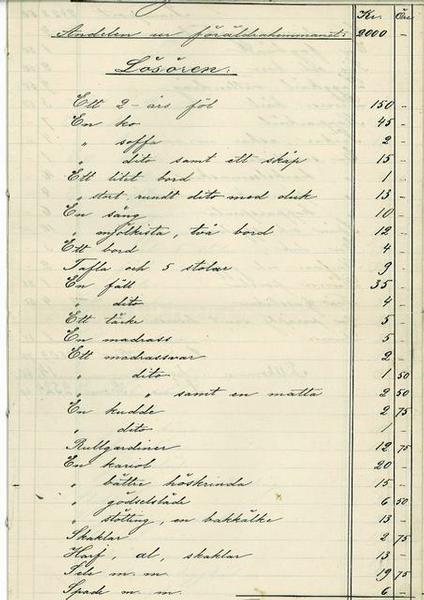 Kr. Öre
Andelen ur föräldrahemmanet: 2000 -
Lösören.
Ett 2-års föl 150 -
En ko 45 -
" soffa 2 -
" dito samt ett skåp 15 -
Ett litet bord 1 -
" stort, rundt dito med duk 13 -
En säng 10 -
" mjölkista, två bord 12 -
Ett bord 4 -
Tafla och 5 stolar 9 -
En fäll 35 -
" dito 4 -
Ett täcke 5 -
En madrass 5 -
Ett madrassvar 2 -
" dito 1 50
" " samt en matta 2 50
En kudde 2 75
" dito 1 -
Rullgardiner 12 75
En kariol 20 -
" bättre höskrinda 15 -
" gödselsläde 6 50
" stötting, en bakkälke 13 -
Skaklar 2 75
Harf, al, skaklar 13 -
Sele m. m. 19 75
Spade m. m. 6 -